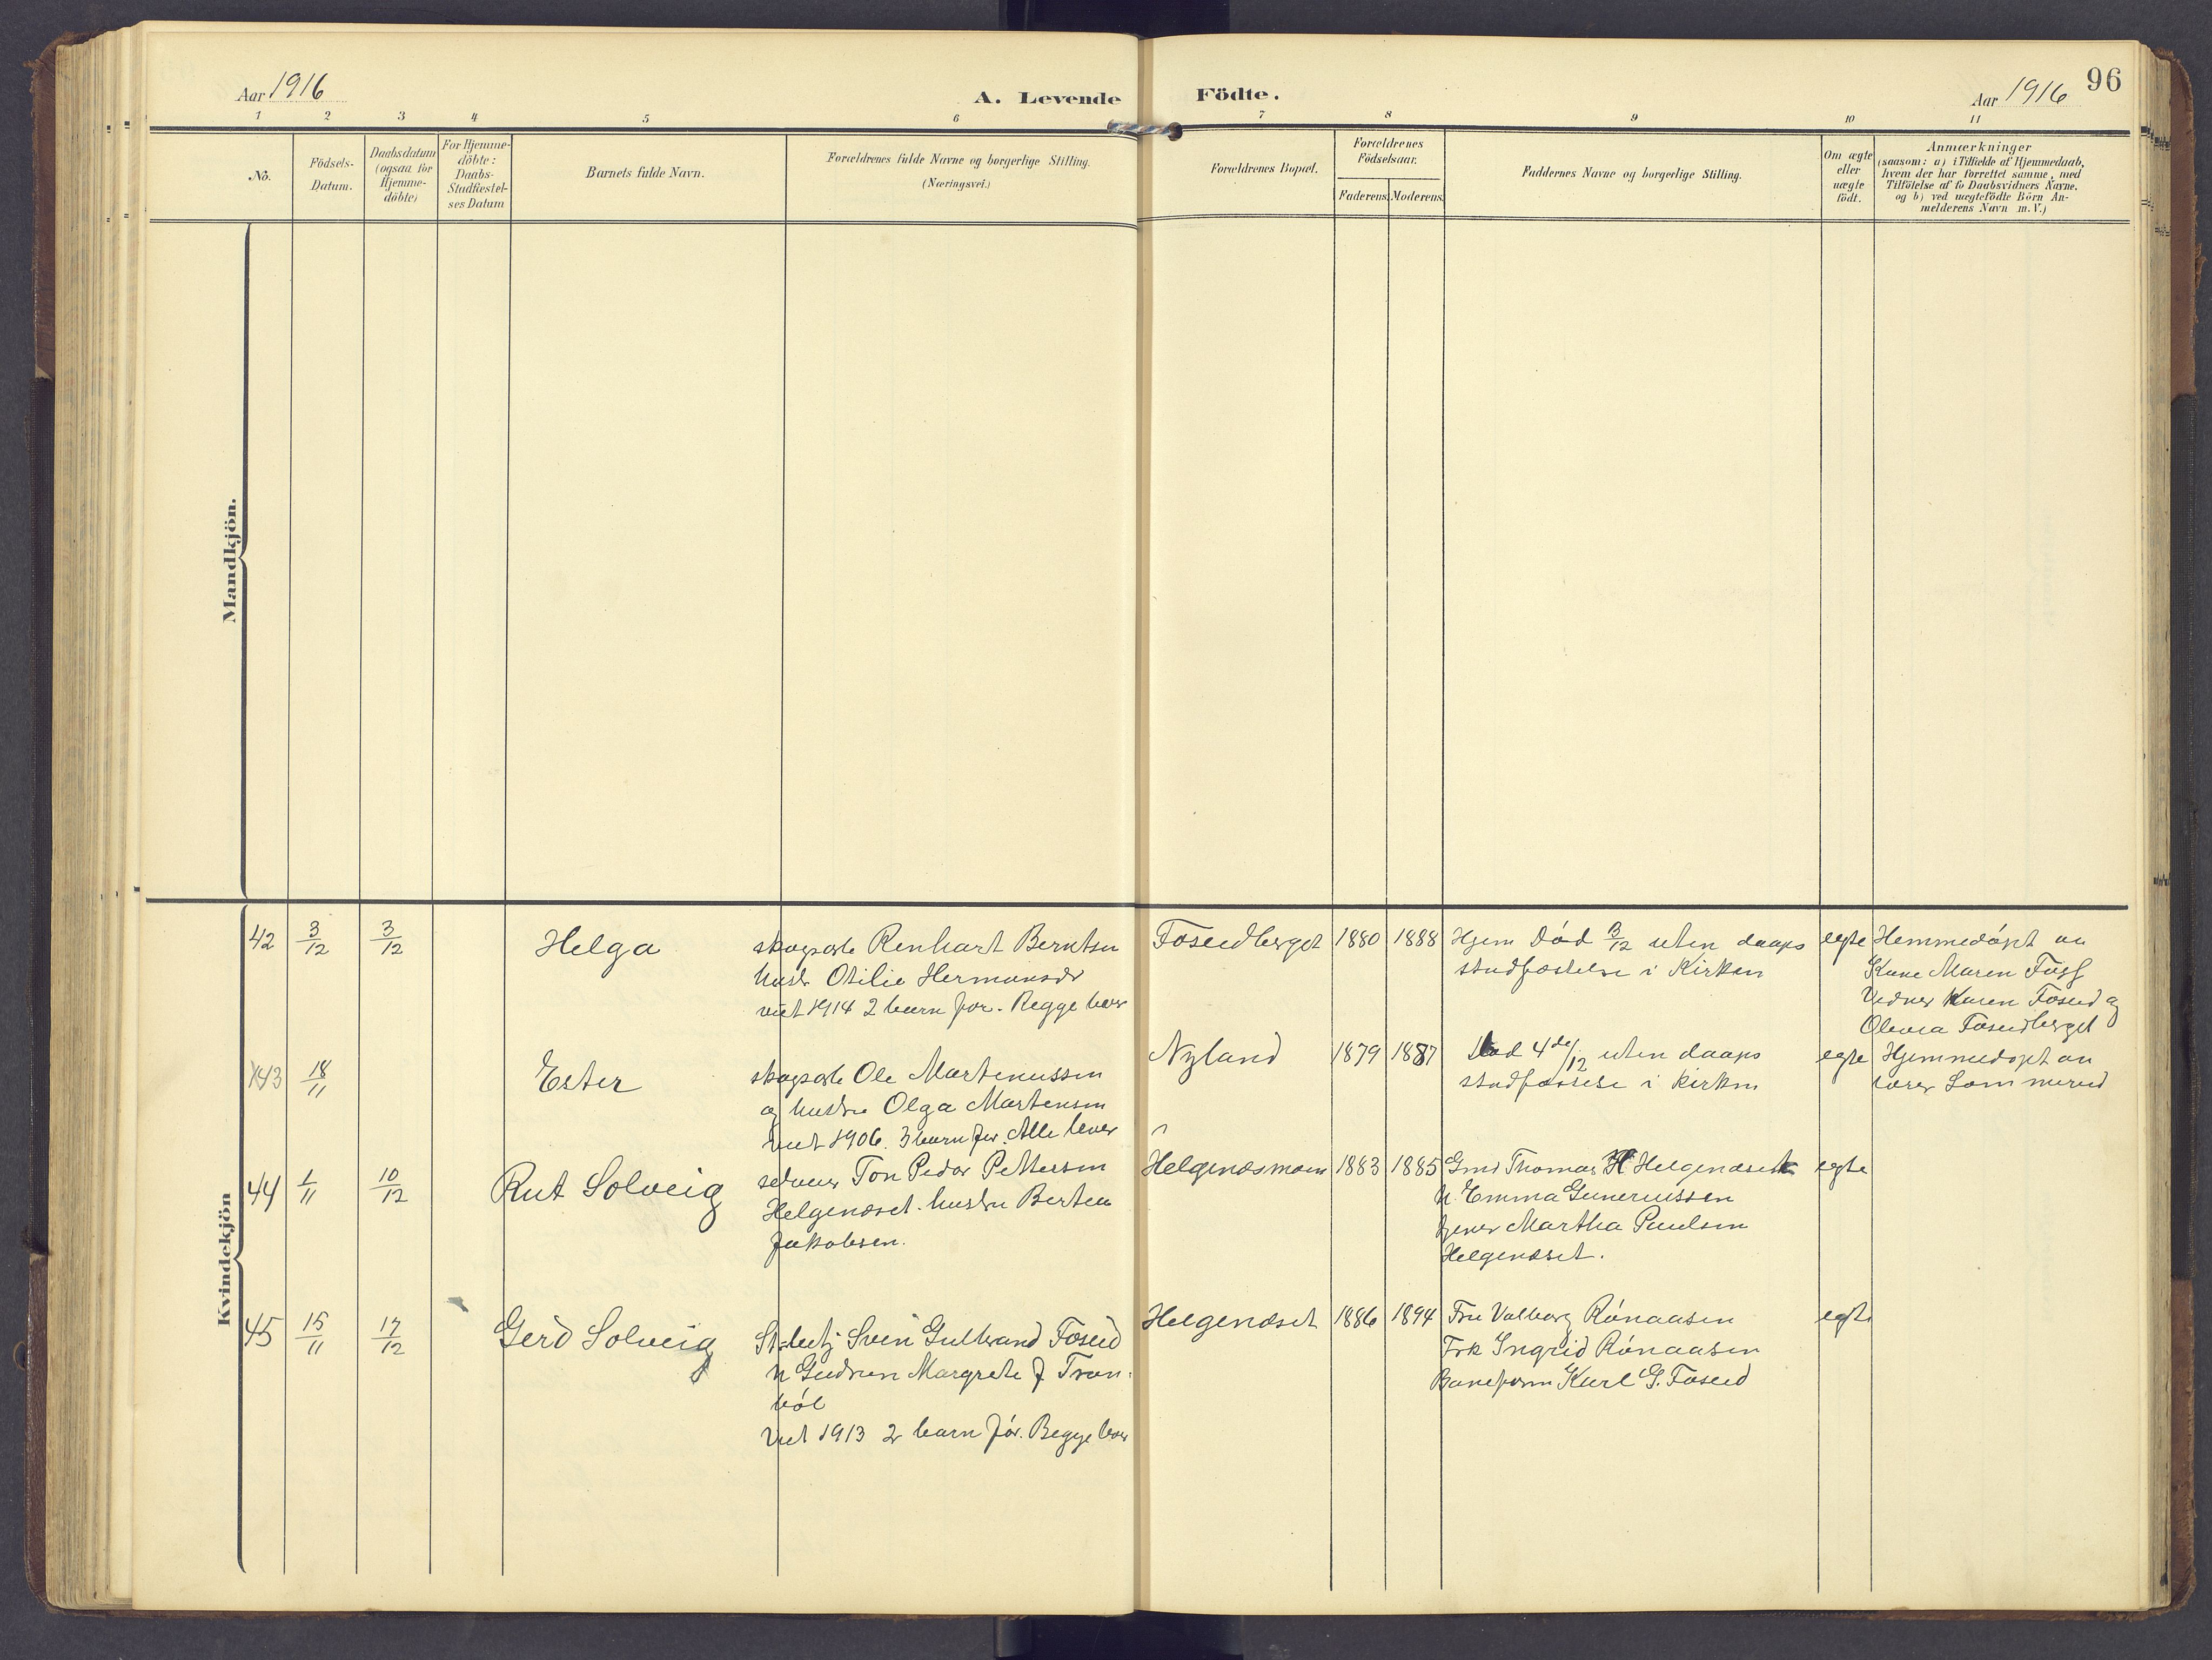 Aar 1916
A. Levende
1 2 3 4 5 6
No.
Födsels-
Datum.
Daabsdatum
(ogsaa for
Hjemme-
döbte)
For Hjemme-
döbte:
Daabs-
Stadfæstel-
ses Datum
Barnets fulde Navn.
Forældrenes fulde Navne og borgerlige Stilling.
(Næringsvei.)
Födte.
Aar 1916
96
7 8 9 10 11
Forældrenes Bopæl.
Forældrenes
Födselsaar.
Faderens. Moderens.
Faddernes Navne og borgerlige Stilling.
Om ægte
eller
uægte
födt.
Anmærkninger
(saasom: a) i Tilfælde af Hjemmedaab,
hvem der har forrettet samme, med
Tilföielse af to Daabsvidners Navne.
og b) ved uægtefödte Börn An-
melderens Navn m. V.)
Mandkjön.
Kvindekjön
42 3/12 3/12 Helga
skogsarb Renhart Berntsen
Hustr Otilie Hermansdr
viet 1914 2 barn før. Begge lever
Foseidberget 1880 1888
Hjem Død 3/12 uten daaps
stadfæstelse i Kirken
egte
Hemmedøpt av
Kone Maren Foss
Vidner Karen Foseid og
Olevia Foseidberget
43 18/11 Ester
skogsarb Ole Martenussen
og hustru Olga Martensen
viet 1906. 3 barn før. Alle lever
Nyland 1879 1887
Død 4de/12 uten daaps
stadfæstelse i kirken
egte
Hjemmedøpt av
lærer Sommerud
44 1/11 10/12 Rut Solveig
selveier Ton Peder Pettersen
Helgenæset. hustru Bertea
Jakobsen.
Helgenæsmoen 1883 1885
Gmd Thomas H Helgenæset
h. Emma Gunerussen
tjener Martha Paulsen
Helgenæset.
egte
45 15/11 17/12 Gerd Solveig
St.betj Sven Gulbrand Foseid
h Gudrun Margrete f Tran-
bøl
Viet 1913 2 barn før. Begge lever
Helgenæset 1886 1894
Fru Valborg Rønaasen
Frk Ingrid Rønaasen
Baneform Karl G. Foseid
egte